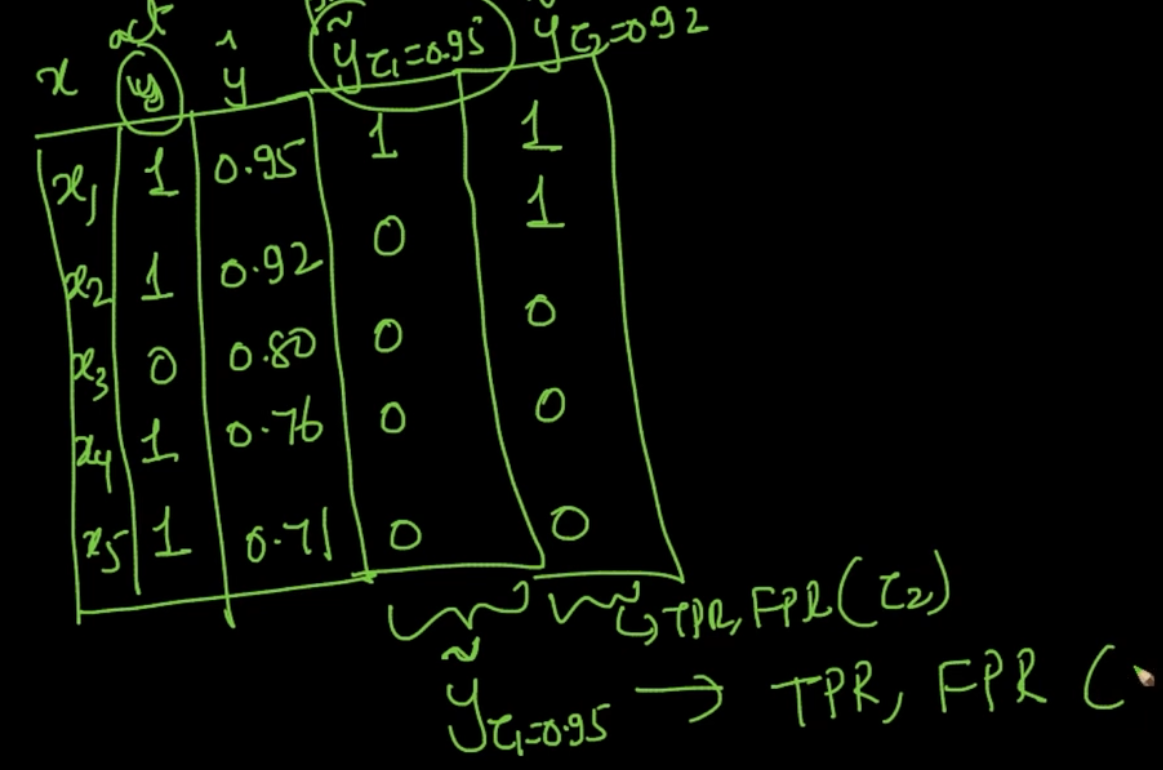 act
x y ŷ ỹτ₁=0.95 ỹτ₂=0.92
x₁ 1 0.95 1 1
x₂ 1 0.92 0 1
x₃ 0 0.80 0 0
x₄ 1 0.76 0 0
x₅ 1 0.71 0 0
TPR, FPR(τ₂)
ỹτ₁=0.95 → TPR, FPR (